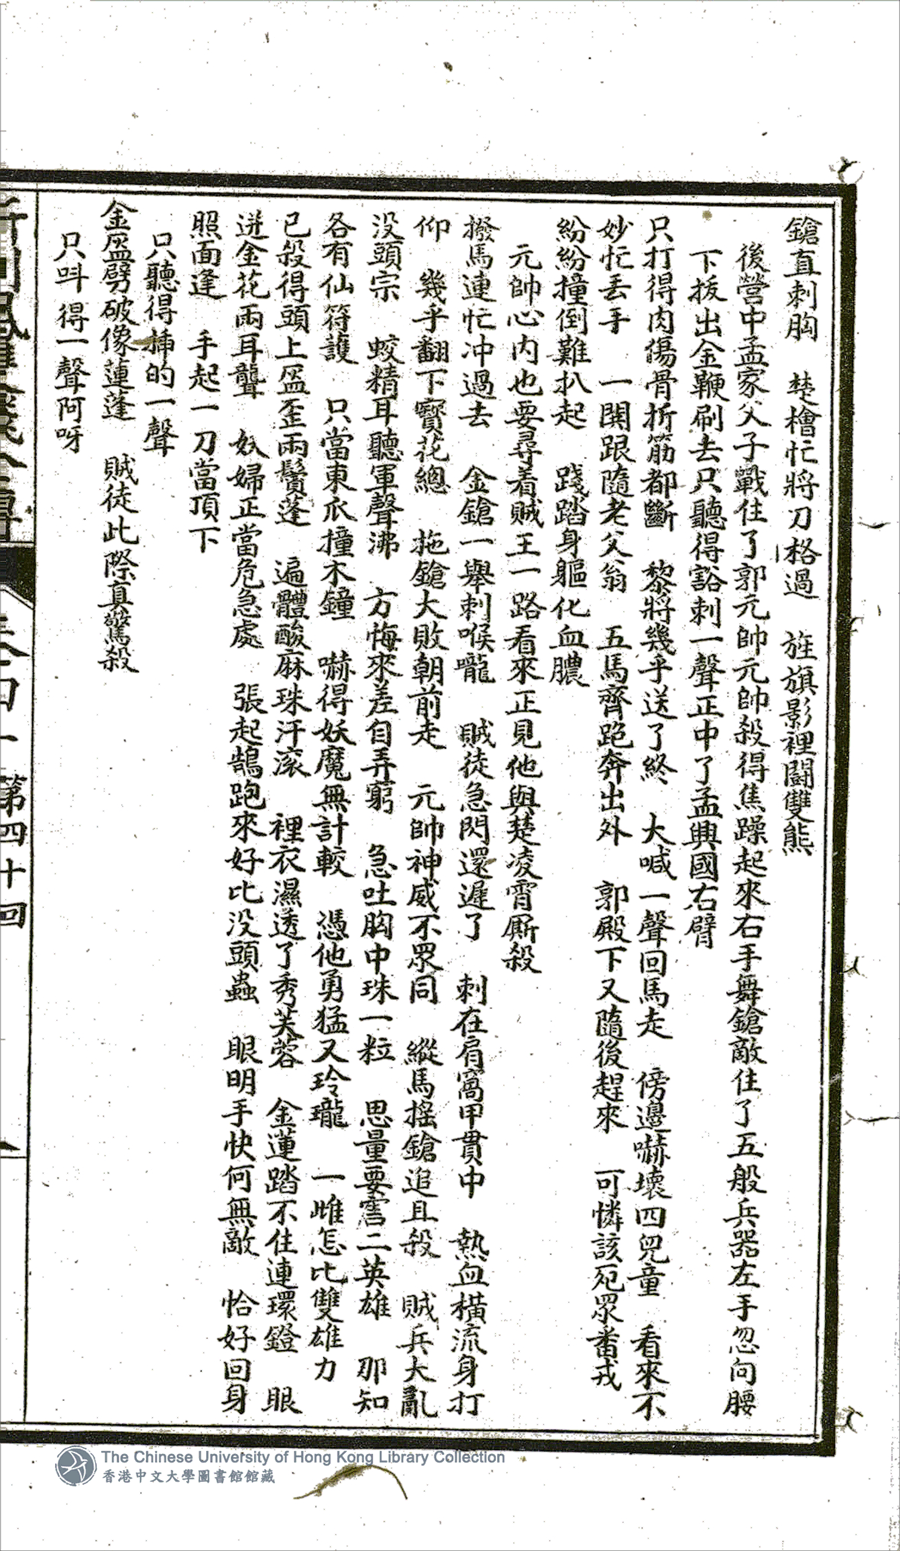 鎗直刺胸　楚檜忙將刀格過　旌旗影裡鬪雙熊
後營中孟家父子戰住了郭元帥元帥殺得焦躁起來右手舞鎗敵住了五般兵器左手忽向腰
下扳出金鞭刷去只聽得豁刺一聲正中了孟興國右臂
只打得肉傷骨折筋都斷　黎將幾乎送了終　大喊一聲回馬走　傍邊嚇壞四兒童　看來不
妙忙丢手　一閧跟隨老父翁　五馬齊跑奔出外　郭殿下又隨後趕來　可憐該死眾番戎
紛紛撞倒難扒起　踐踏身軀化血膿
元帥心內也要尋着賊王一路看來正見他與楚凌霄厮殺
撥馬連忙冲過去　金鎗一舉刺喉嚨　賊徒急閃還遲了　刺在肩窩甲貫中　熱血橫流身打
仰　幾乎翻下寳花總　拖鎗大敗朝前走　元帥神威不眾同　縱馬搖鎗追且殺　賊兵大亂
没頭宗　蛟精耳聽軍聲沸　方悔來差自弄窮　急吐胸中珠一粒　思量要害二英雄　那知
各有仙符護　只當東爪撞木鐘　嚇得妖魔無計較　憑他勇猛又玲瓏　一雌怎比雙雄力
已殺得頭上盔歪兩鬢蓬　遍體酸麻珠汗滚　裡衣濕透了秀芙蓉　金蓮踏不住連環鐙　眼
迸金花兩耳聾　妖婦正當危急處　張起鵠跑來好比没頭蟲　眼明手快何無敵　恰好回身
照面逢　手起一刀當頂下
只聽得㨗的一聲
金盔劈破像蓮蓬　賊徒此際真驚殺
只呌得一聲阿呀
第四十回
The Chinese University of Hong Kong Library Collection
香港中文大學圖書館館藏